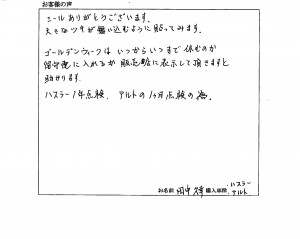 お客様の声
シールありがとうございます。
大きなツキが舞い込むように貼ってみます。
ゴールデンウィークは いつからいつまで休むのか
留守電に入れるか 販売店に表示して頂きますと
助かります。
ハスラー1年点検、アルトの1ヶ月点検の為。
お名前 田中 購入車種 ・ハスラー
・アルト